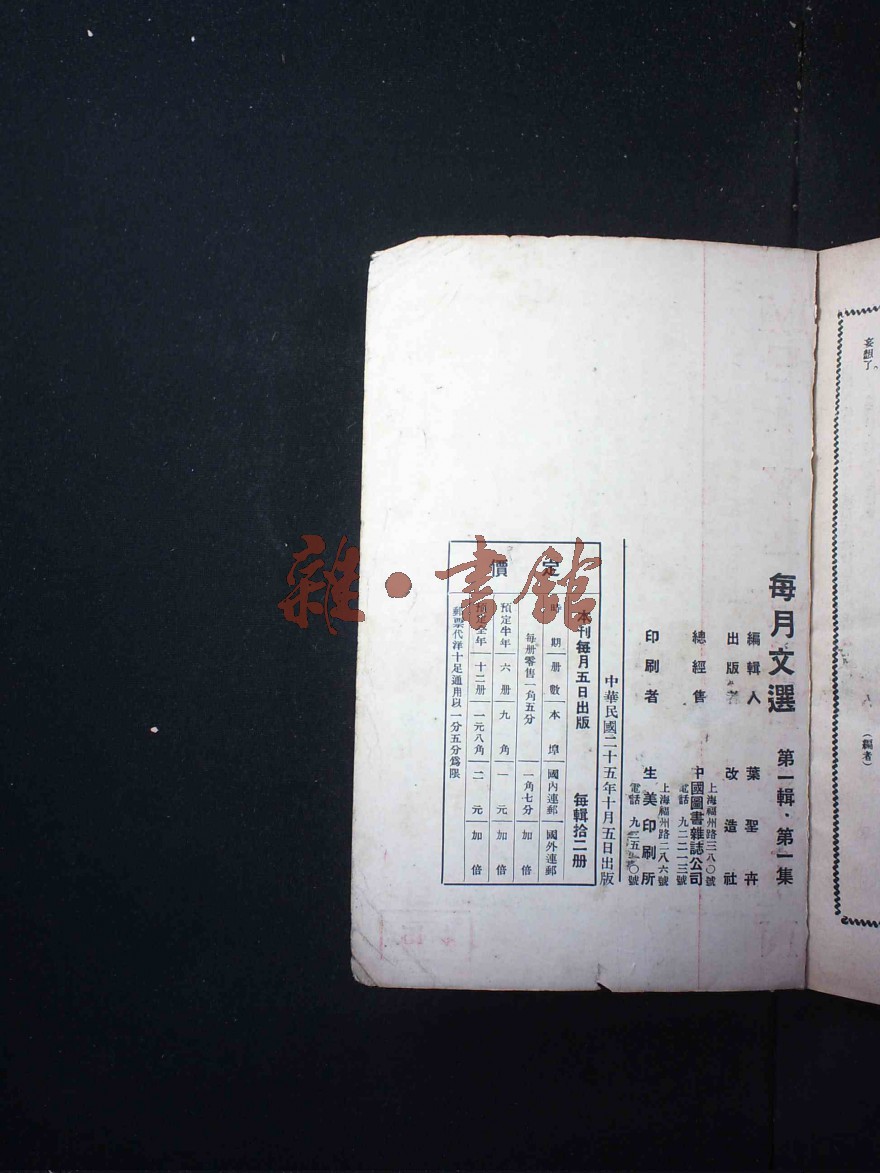 妄想了。
（編者）
每月文選 第一輯·第一集
編輯人 葉聖卉
出版者 改造社
總經售 中國圖書雜誌公司
上海福州路三八〇號
電話 九二二一三號
印刷者 生美印刷所
上海福州路二八六號
電話 九二五五〇號
中華民國二十五年十月五日出版
定價
本刊每月五日出版 每輯拾二册
時期 册數 本埠 國內連郵 國外連郵
每册零售一角五分 一角七分 加倍
預定半年 六册 九角 一元 加倍
預定全年 十二册 一元八角 二元 加倍
郵票代洋十足通用以一分五分爲限
雜·書館